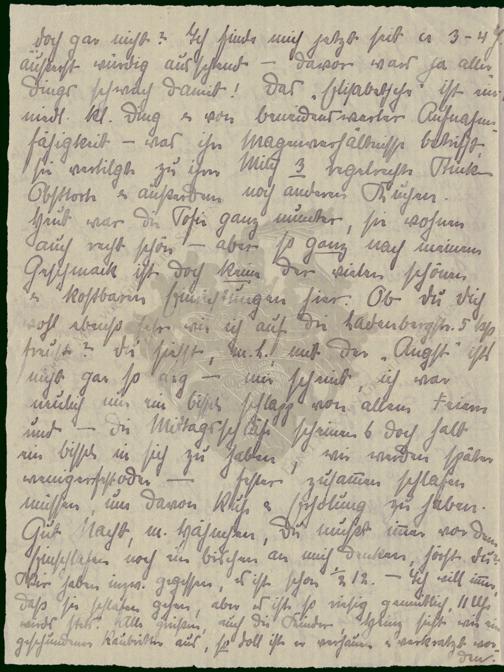 doch gar nicht? Ich finde mich jetzt seit ca 3-4
äußerst würdig aussehend – davor wars ja aller
dings schwach damit! Das „Elisabethche" ist ein
niedl. kl. Ding & von beneidenswerter Aufnahme
fähigkeit – was ihre Magenverhältnisse betrifft,
sie vertilgte zu ihrer Milch 3 regelrechte Stücke
Obsttorte & außerdem noch anderen Kuchen.
Heut war die Tosie ganz munter, sie wohnen
auch recht schön – aber so ganz nach meinem
Geschmack ist doch keine der vielen schönen
& kostbaren Einrichtungen hier. Ob du dich
wohl ebenso sehr wie ich auf die Ladenbergstr. 5
freust? Du siehst, m. L. mit der „Angst" ist's
nicht gar so arg – mir scheint, ich war
neulich nur ein bissel schlapp von allem Feiern
und – die Mittagsschläfe scheinen 's doch halt
ein bissel in sich zu haben, wir werden später
wenigerschtoden – fester zusammen schlafen
müssen, um davon Ruh & Erholung zu haben.
Gut Nacht, m. Hähnchen, Du mußt immer vor dem
Einschlafen noch ein bischen an mich denken, hörst du?
Wir haben inzw. gegessen, 's ist schon ½ 12. – Ich will immer,
daß sie schlafen gehen, aber 's ist so riesig gemütlich, 11 Uhr
wirds stets. Alle grüßen, auch die Kinder. sieht wie ein
geschundener Raubritter aus, so doll ist er verhauen & verkratzt wor
den.